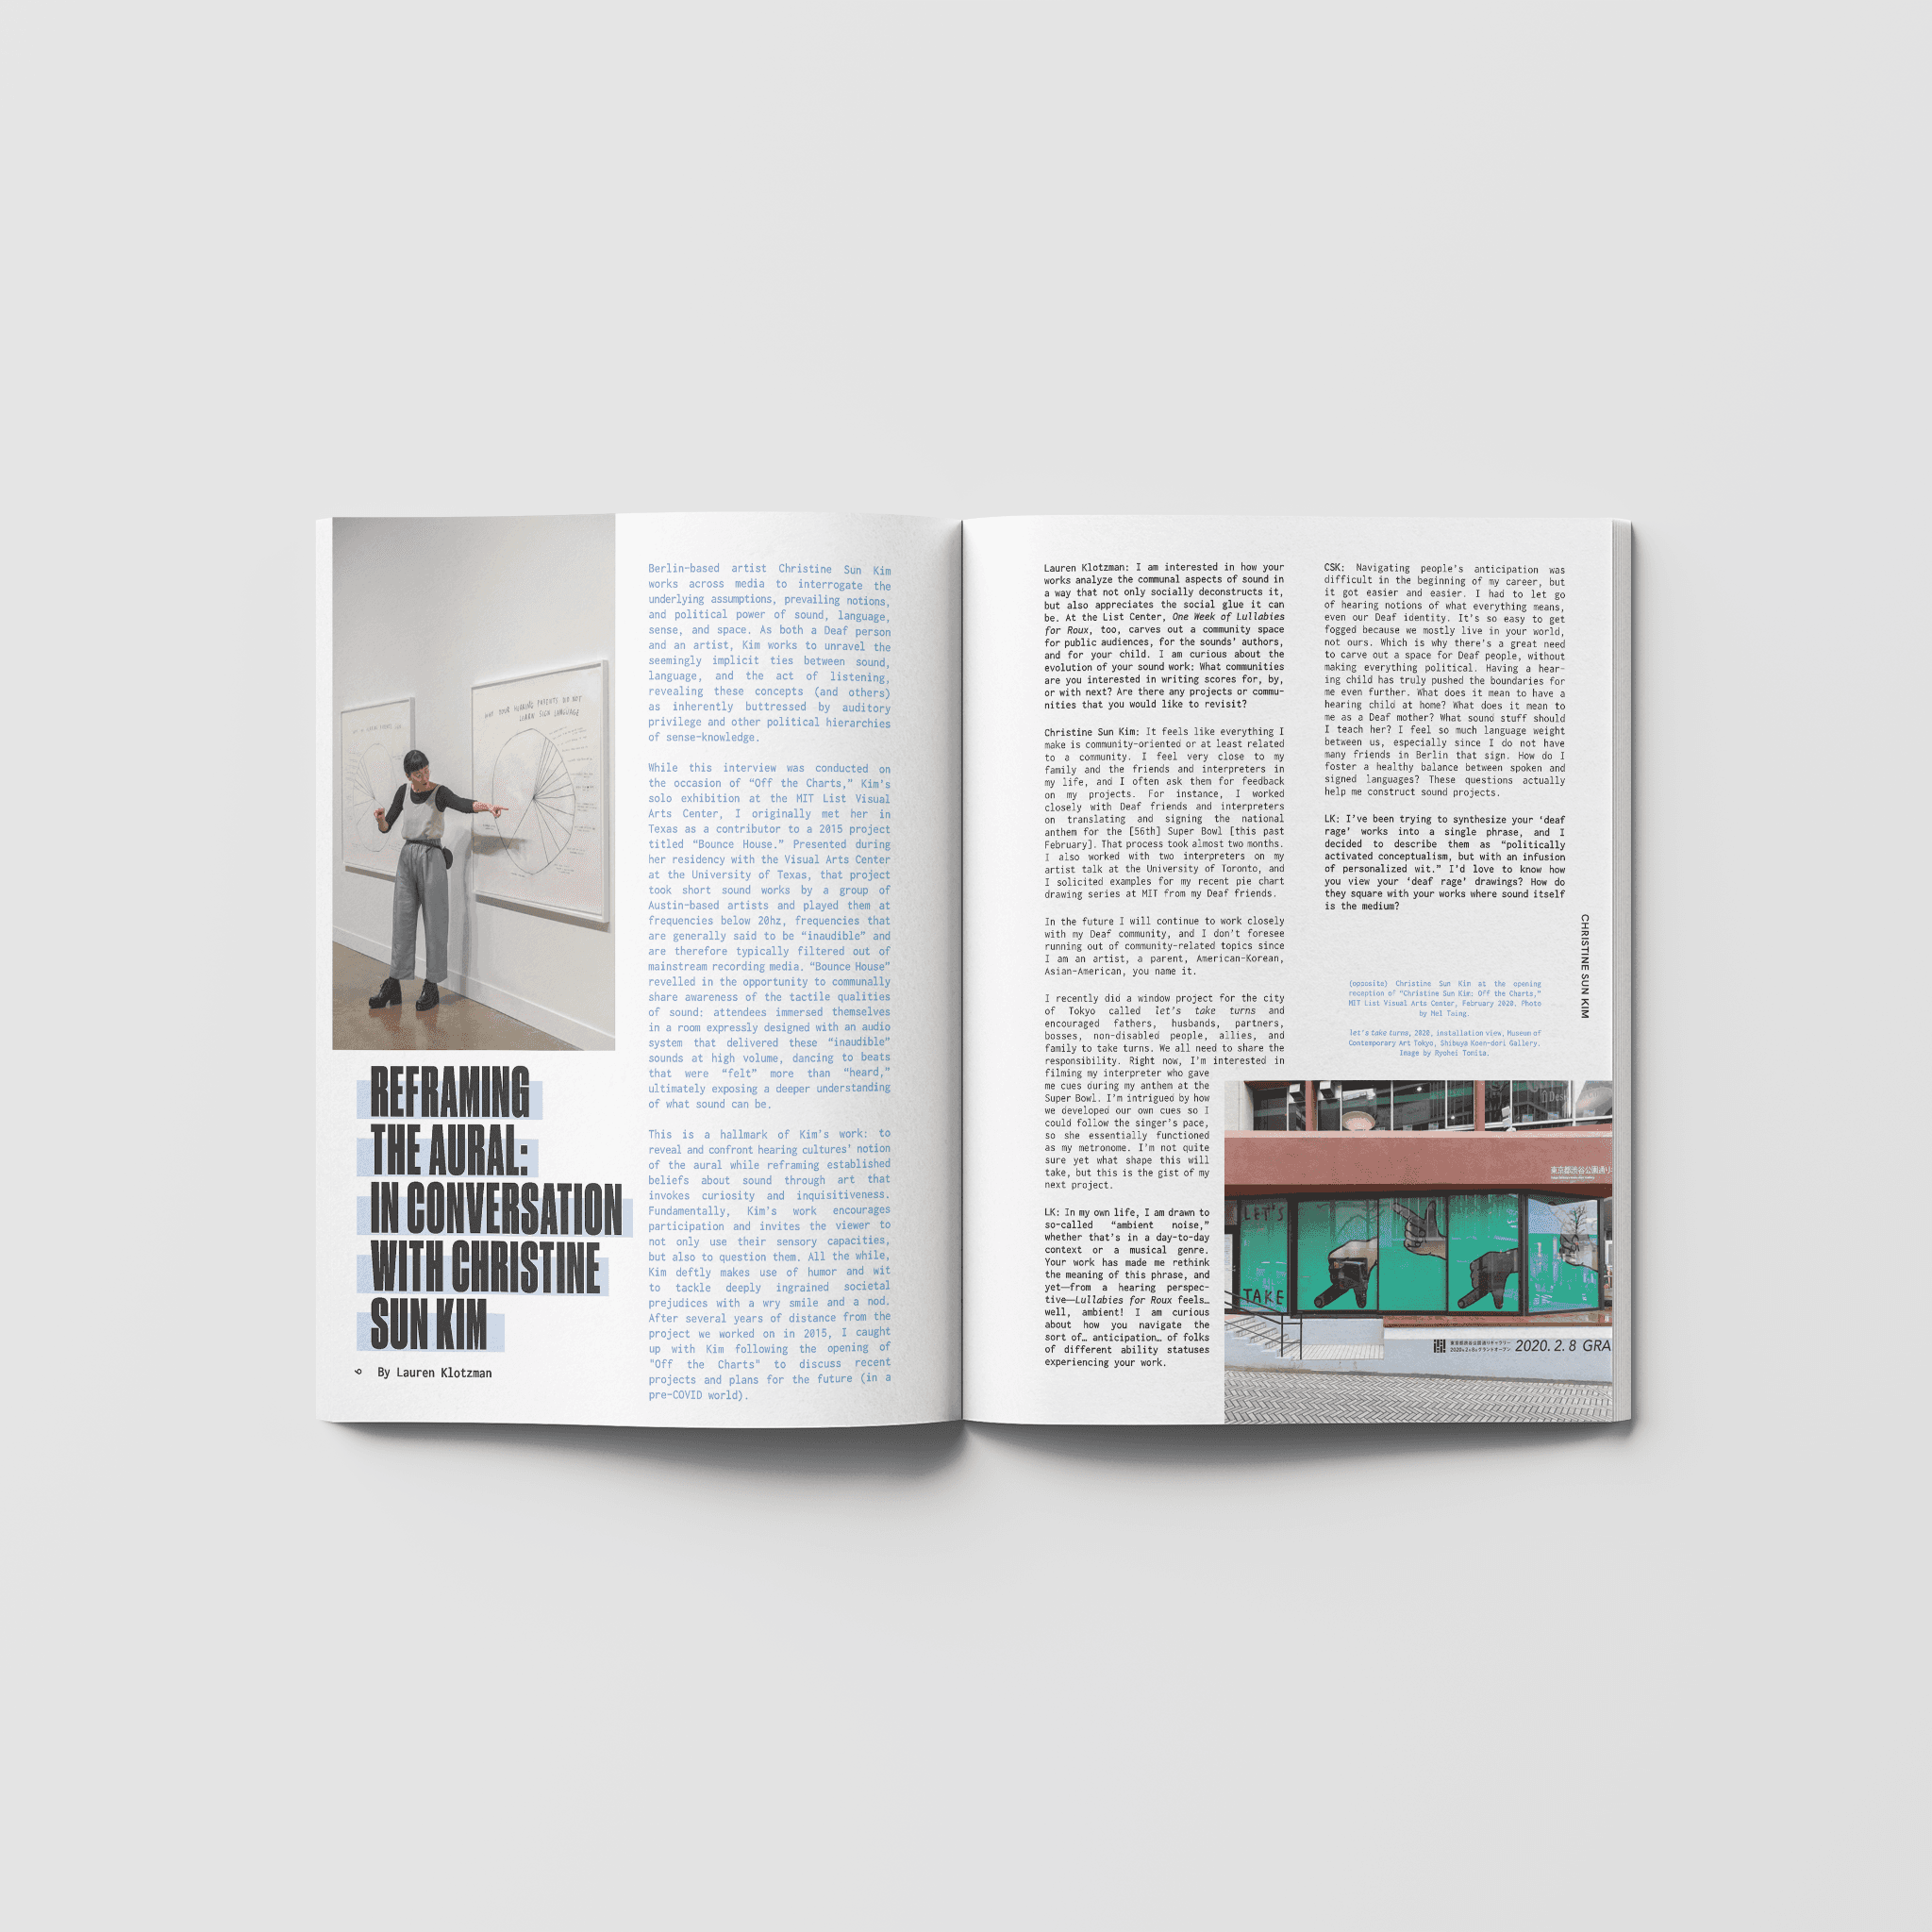 WHY YOUR HEARING PARENTS DO NOT
LEARN SIGN LANGUAGE
REFRAMING
THE AURAL:
IN CONVERSATION
WITH CHRISTINE
SUN KIM
By Lauren Klotzman
Berlin-based artist Christine Sun Kim
works across media to interrogate the
underlying assumptions, prevailing notions,
and political power of sound, language,
sense, and space. As both a Deaf person
and an artist, Kim works to unravel the
seemingly implicit ties between sound,
language, and the act of listening,
revealing these concepts (and others)
as inherently buttressed by auditory
privilege and other political hierarchies
of sense-knowledge.
While this interview was conducted on
the occasion of “Off the Charts,” Kim’s
solo exhibition at the MIT List Visual
Arts Center, I originally met her in
Texas as a contributor to a 2015 project
titled “Bounce House.” Presented during
her residency with the Visual Arts Center
at the University of Texas, that project
took short sound works by a group of
Austin-based artists and played them at
frequencies below 20hz, frequencies that
are generally said to be “inaudible” and
are therefore typically filtered out of
mainstream recording media. “Bounce House”
revelled in the opportunity to communally
share awareness of the tactile qualities
of sound: attendees immersed themselves
in a room expressly designed with an audio
system that delivered these “inaudible”
sounds at high volume, dancing to beats
that were “felt” more than “heard,”
ultimately exposing a deeper understanding
of what sound can be.
This is a hallmark of Kim’s work: to
reveal and confront hearing cultures’ notion
of the aural while reframing established
beliefs about sound through art that
invokes curiosity and inquisitiveness.
Fundamentally, Kim’s work encourages
participation and invites the viewer to
not only use their sensory capacities,
but also to question them. All the while,
Kim deftly makes use of humor and wit
to tackle deeply ingrained societal
prejudices with a wry smile and a nod.
After several years of distance from the
project we worked on in 2015, I caught
up with Kim following the opening of
"Off the Charts" to discuss recent
projects and plans for the future (in a
pre-COVID world).
Lauren Klotzman: I am interested in how your
works analyze the communal aspects of sound in
a way that not only socially deconstructs it,
but also appreciates the social glue it can
be. At the List Center, One Week of Lullabies
for Roux, too, carves out a community space
for public audiences, for the sounds’ authors,
and for your child. I am curious about the
evolution of your sound work: What communities
are you interested in writing scores for, by,
or with next? Are there any projects or commu-
nities that you would like to revisit?
Christine Sun Kim: It feels like everything I
make is community-oriented or at least related
to a community. I feel very close to my
family and the friends and interpreters in
my life, and I often ask them for feedback
on my projects. For instance, I worked
closely with Deaf friends and interpreters
on translating and signing the national
anthem for the [56th] Super Bowl [this past
February]. That process took almost two months.
I also worked with two interpreters on my
artist talk at the University of Toronto, and
I solicited examples for my recent pie chart
drawing series at MIT from my Deaf friends.
In the future I will continue to work closely
with my Deaf community, and I don’t foresee
running out of community-related topics since
I am an artist, a parent, American-Korean,
Asian-American, you name it.
I recently did a window project for the city
of Tokyo called let’s take turns and
encouraged fathers, husbands, partners,
bosses, non-disabled people, allies, and
family to take turns. We all need to share the
responsibility. Right now, I’m interested in
filming my interpreter who gave
me cues during my anthem at the
Super Bowl. I’m intrigued by how
we developed our own cues so I
could follow the singer’s pace,
so she essentially functioned
as my metronome. I’m not quite
sure yet what shape this will
take, but this is the gist of my
next project.
LK: In my own life, I am drawn to
so-called “ambient noise,”
whether that’s in a day-to-day
context or a musical genre.
Your work has made me rethink
the meaning of this phrase, and
yet—from a hearing perspec-
tive—Lullabies for Roux feels…
well, ambient! I am curious
about how you navigate the
sort of… anticipation… of folks
of different ability statuses
experiencing your work.
CSK: Navigating people’s anticipation was
difficult in the beginning of my career, but
it got easier and easier. I had to let go
of hearing notions of what everything means,
even our Deaf identity. It’s so easy to get
fogged because we mostly live in your world,
not ours. Which is why there’s a great need
to carve out a space for Deaf people, without
making everything political. Having a hear-
ing child has truly pushed the boundaries for
me even further. What does it mean to have a
hearing child at home? What does it mean to
me as a Deaf mother? What sound stuff should
I teach her? I feel so much language weight
between us, especially since I do not have
many friends in Berlin that sign. How do I
foster a healthy balance between spoken and
signed languages? These questions actually
help me construct sound projects.
LK: I’ve been trying to synthesize your ‘deaf
rage’ works into a single phrase, and I
decided to describe them as “politically
activated conceptualism, but with an infusion
of personalized wit.” I’d love to know how
you view your ‘deaf rage’ drawings? How do
they square with your works where sound itself
is the medium?
CHRISTINE SUN KIM
(opposite) Christine Sun Kim at the opening
reception of “Christine Sun Kim: Off the Charts,”
MIT List Visual Arts Center, February 2020. Photo
by Mel Taing.
let’s take turns, 2020, installation view, Museum of
Contemporary Art Tokyo, Shibuya Koen-dori Gallery.
Image by Ryohei Tomita.
東京都渋谷公園通り
LET'S
TAKE
2020. 2. 8 GRA